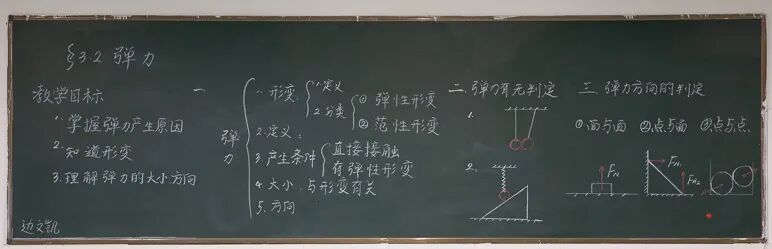 §3.2 弹力
教学目标
1.掌握弹力产生原因
2.知道形变
3.理解弹力的大小方向
边文凯
一
弹力
1.形变
1.定义
2.分类
①弹性形变
②范性形变
2.定义:
3.产生条件
直接接触
有弹性形变
4.大小:与形变有关
5.方向
二.弹力有无判定
1.
2.
三.弹力方向的判定
①面与面 ②点与面 ③点与点
FN
FN
FN2